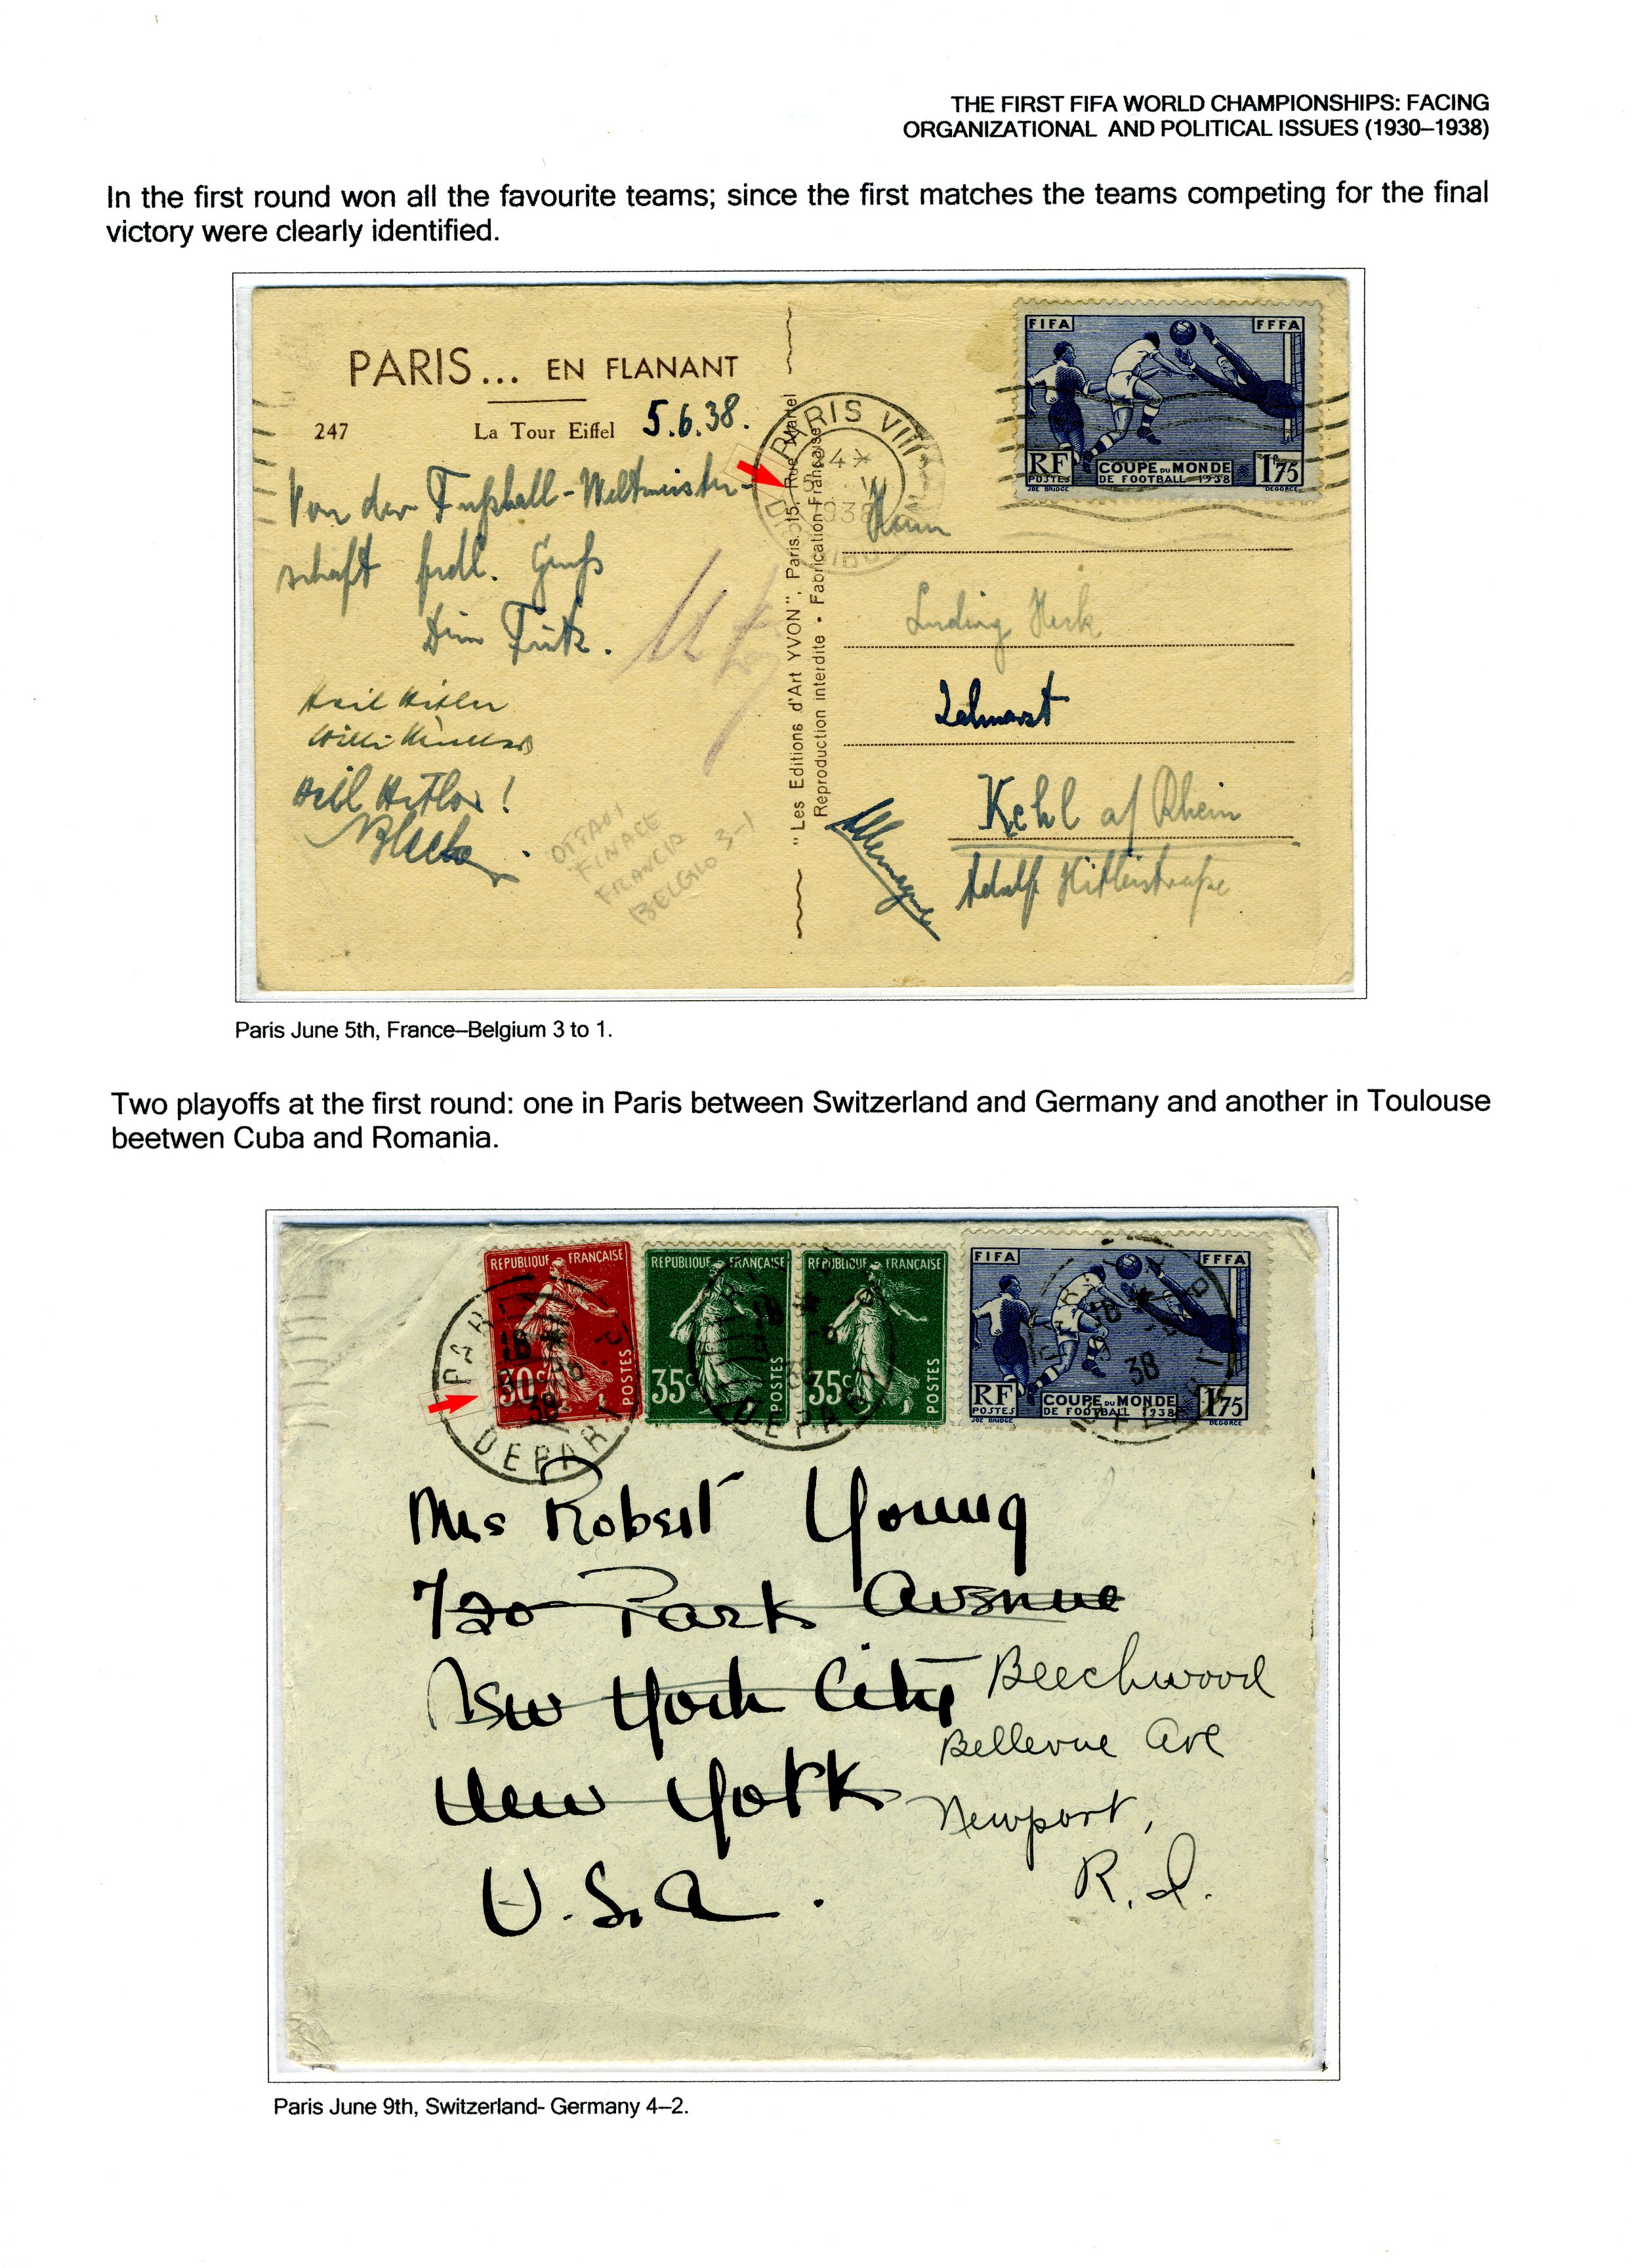 THE FIRST FIFA WORLD CHAMPIONSHIPS: FACING
ORGANIZATIONAL AND POLITICAL ISSUES (1930–1938)
In the first round won all the favourite teams; since the first matches the teams competing for the final
victory were clearly identified.
PARIS... EN FLANANT
247 La Tour Eiffel 5.6.38.
Von der Fußball-Weltmeister-
schaft frdl. Gruß
Dein Fritz.
Heil Hitler
Willi
Heil Hitler!
OTTAVI
FINALE
FRANCIA
BELGIO 3-1
"Les Editions d'Art YVON", Paris, 15, Rue Martel
Reproduction interdite • Fabrication Française
PARIS VIII
1938
FIFA FFFA
RF COUPE DU MONDE 1F75
POSTES DE FOOTBALL 1938
JOE BRIDGE DEGORCE
Herrn
Ludwig
Zahnarzt
Kehl a/Rhein
Adolf Hitlerstraße
Allemagne
Paris June 5th, France–Belgium 3 to 1.
Two playoffs at the first round: one in Paris between Switzerland and Germany and another in Toulouse
beetwen Cuba and Romania.
REPUBLIQUE FRANÇAISE
30c POSTES
REPUBLIQUE FRANÇAISE
35c POSTES
REPUBLIQUE FRANÇAISE
35c POSTES
FIFA FFFA
RF COUPE DU MONDE 1F75
POSTES DE FOOTBALL 1938
JOE BRIDGE DEGORCE
PARIS
18
38
DEPART
18
DEPART
18
38
Mrs Robert Young
720 Park Avenue
New York City
New York
U.S.A.
Beechwood
Bellevue Ave
Newport,
R.I.
Paris June 9th, Switzerland- Germany 4–2.